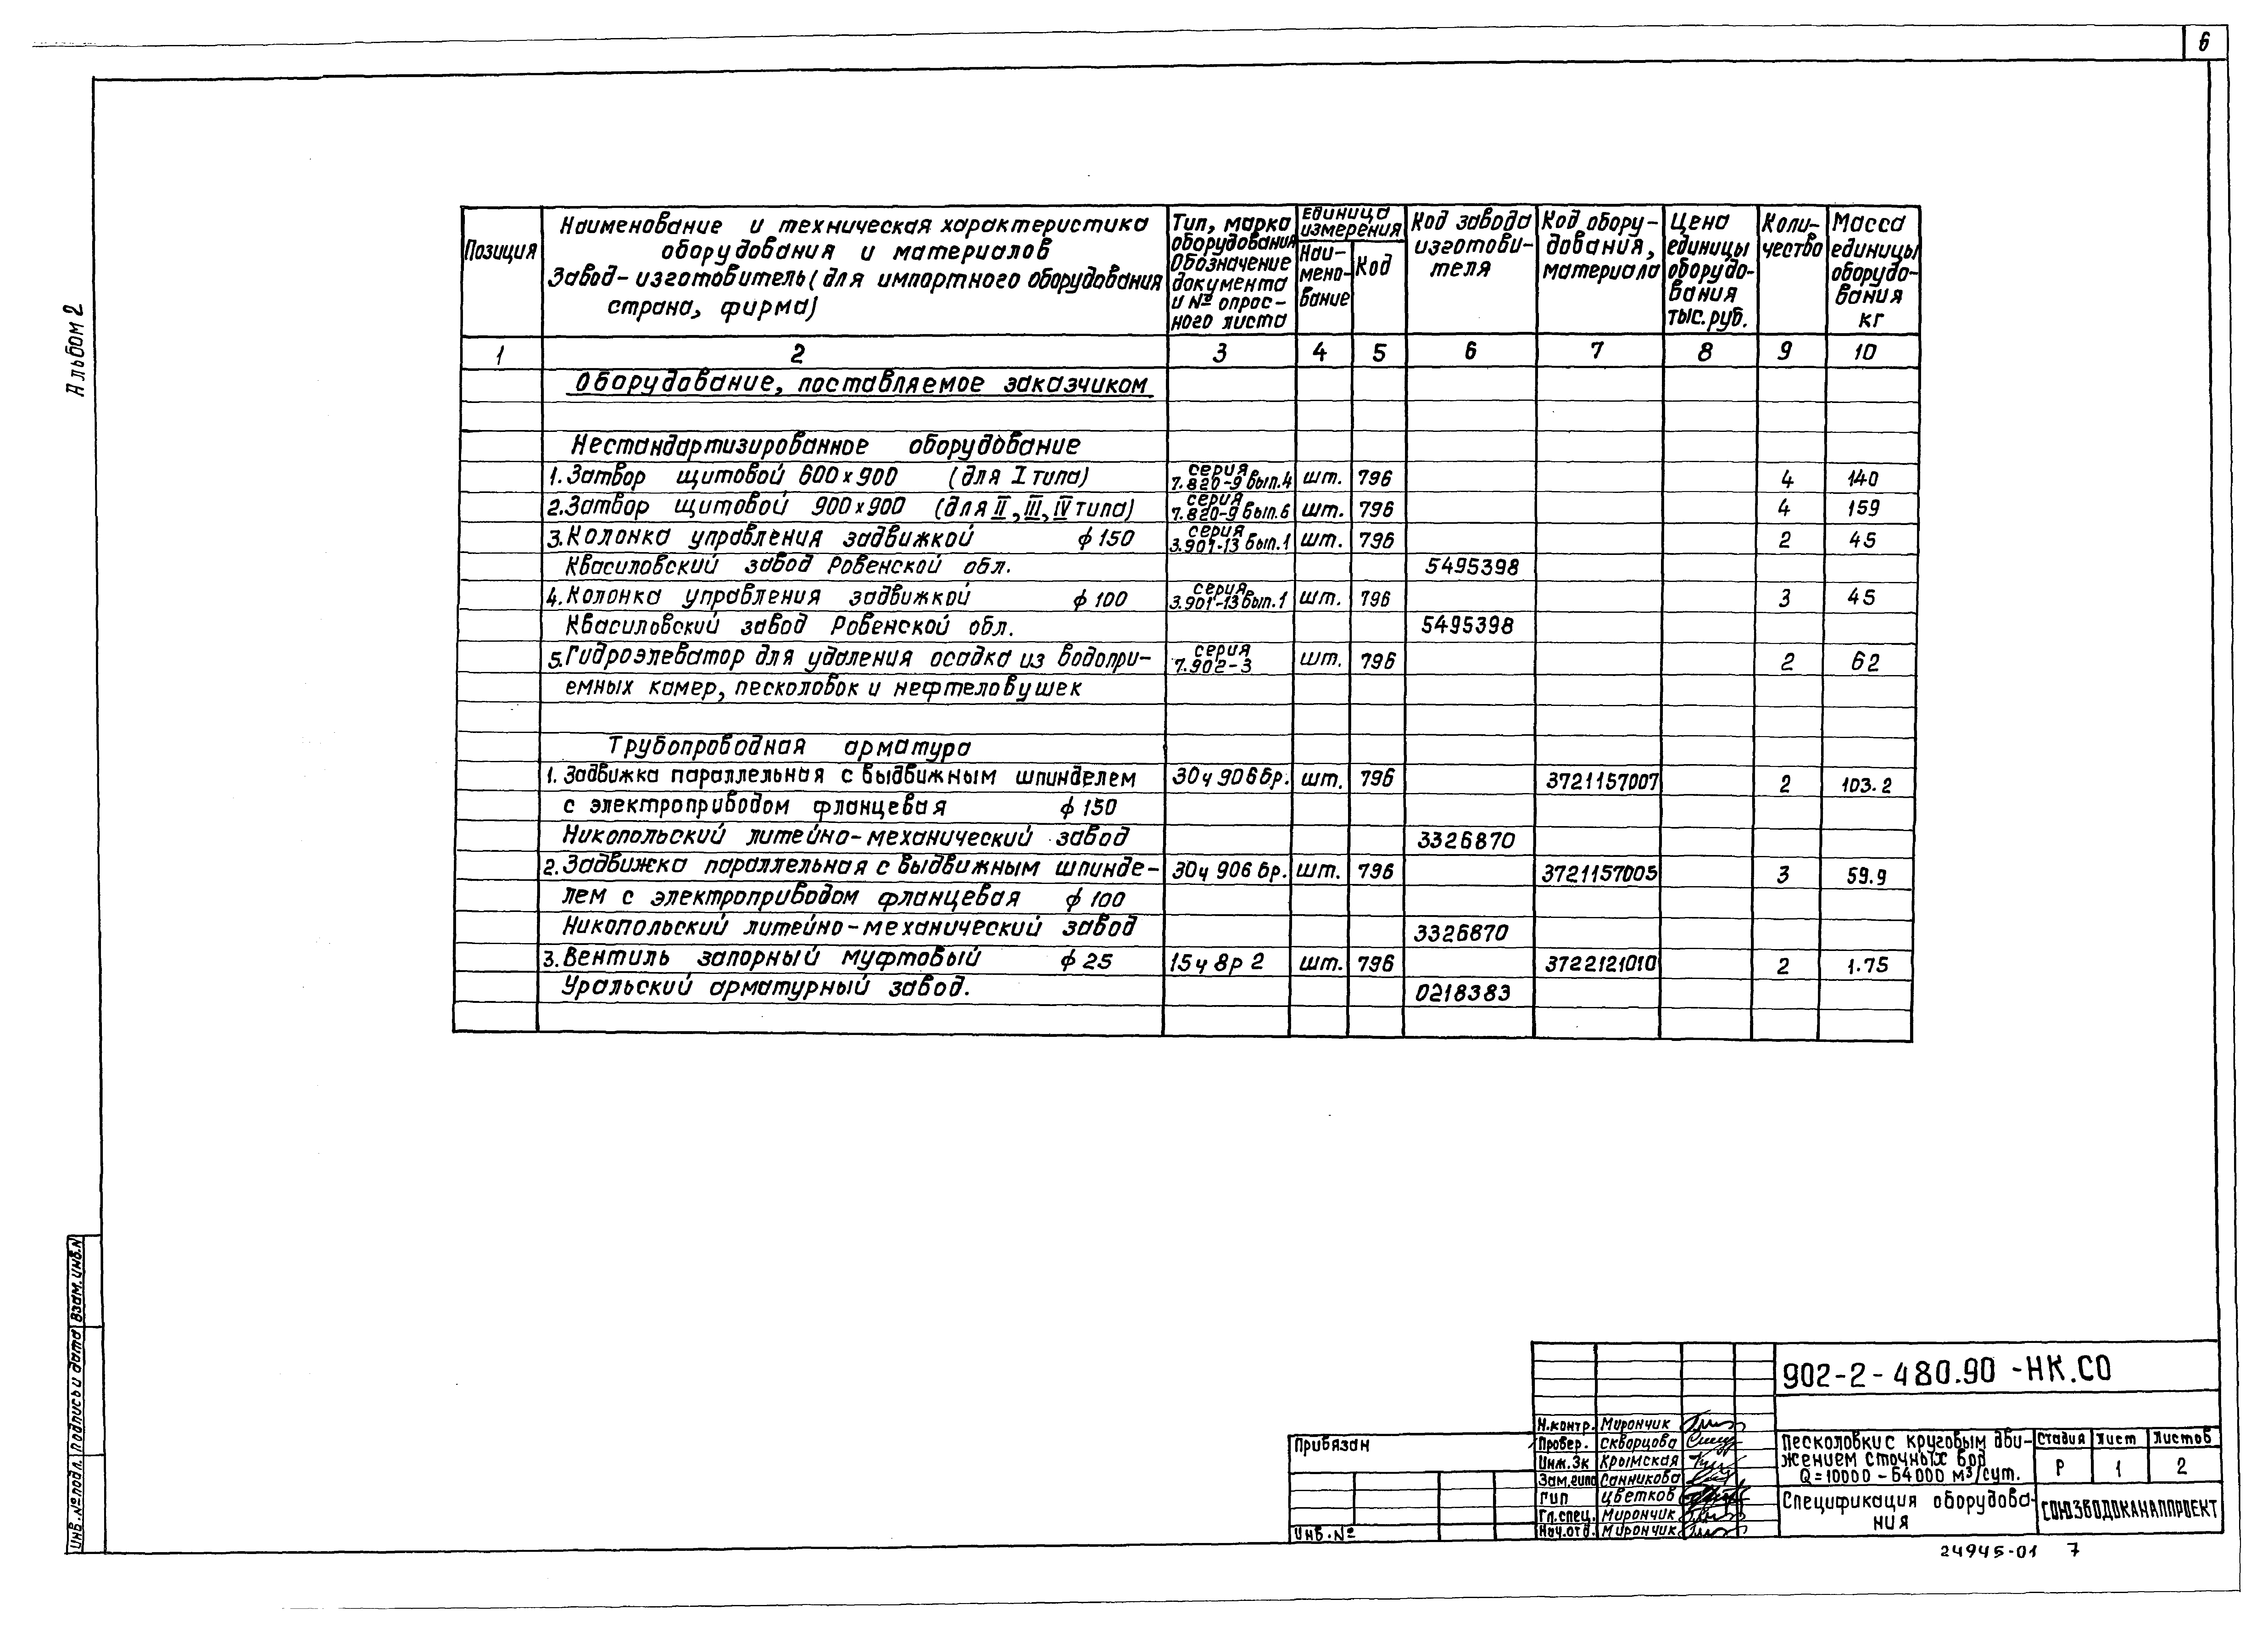 6
Альбом 2
Позиция
Наименование и техническая характеристика
оборудования и материалов
Завод-изготовитель (для импортного оборудования
страна, фирма)
Тип, марка
оборудования
Обозначение
документа
и № опрос-
ного листа
единица
измерения
Наи-
мено-
вание
Код
Код завода
изготови-
теля
Код обору-
дования,
материала
Цена
единицы
оборудо-
вания
тыс. руб.
Коли-
чество
Масса
единицы
оборудо-
вания
кг
1 2 3 4 5 6 7 8 9 10
Оборудование, поставляемое заказчиком
Нестандартизированное оборудование
1. Затвор щитовой 600х900 (для I типа) серия 7.820-9 вып.4 шт. 796 4 140
2. Затвор щитовой 900х900 (для II, III, IV типа) серия 7.820-9 вып.6 шт. 796 4 159
3. Колонка управления задвижкой ф 150 серия 3.901-13 вып.1 шт. 796 2 45
Квасиловский завод Ровенской обл. 5495398
4. Колонка управления задвижкой ф 100 серия 3.901-13 вып.1 шт. 796 3 45
Квасиловский завод Ровенской обл. 5495398
5. Гидроэлеватор для удаления осадка из водопри- серия 7.902-3 шт. 796 2 62
емных камер, песколовок и нефтеловушек
Трубопроводная арматура
1. Задвижка параллельная с выдвижным шпинделем 30ч 906бр. шт. 796 3721157007 2 103.2
с электроприводом фланцевая ф 150
Никопольский литейно-механический завод 3326870
2. Задвижка параллельная с выдвижным шпинде- 30ч 906 бр. шт. 796 3721157005 3 59.9
лем с электроприводом фланцевая ф 100
Никопольский литейно-механический завод 3326870
3. Вентиль запорный муфтовый ф 25 15ч 8р 2 шт. 796 3722121010 2 1.75
Уральский арматурный завод. 0218383
Взам. инв. N
Подпись и дата
Инв. № подл.
Привязан
Инв. №
Н.контр. Мирончик
Провер. Скворцова
Инж. Зк Крымская
Зам.гипа Санникова
Гип Цветков
Гл. спец. Мирончик
Нач. отд. Мирончик
902-2-480.90-НК.СО
Песколовки с круговым дви-
жением сточных вод
Q=10000-64000 м³/сут.
Стадия Лист Листов
Р 1 2
Спецификация оборудова-
ния
СОЮЗВОДОКАНАЛПРОЕКТ
24945-01 7